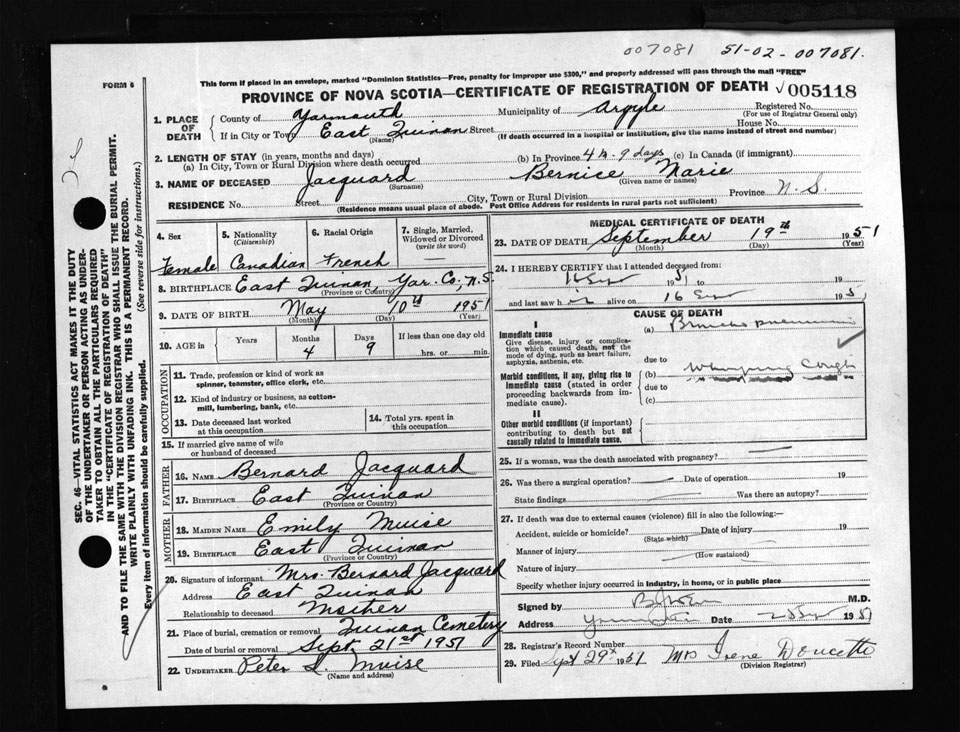 007081 51-02-007081.
FORM 6
This form if placed in an envelope, marked "Dominion Statistics—Free, penalty for improper use $300," and properly addressed will pass through the mail "FREE"
PROVINCE OF NOVA SCOTIA—CERTIFICATE OF REGISTRATION OF DEATH √005118
1. PLACE OF DEATH
County of Yarmouth Municipality of Argyle Registered No.
(For use of Registrar General only)
If in City or Town East Quinan Street House No.
(Name) (If death occurred in a hospital or institution, give the name instead of street and number)
2. LENGTH OF STAY (in years, months and days)
(a) In City, Town or Rural Division where death occurred (b) In Province 4 m. 9 days (c) In Canada (if immigrant)
3. NAME OF DECEASED Jacquard Bernice Marie
(Surname) (Given name or names)
RESIDENCE No. Street City, Town or Rural Division Province N.S.
(Residence means usual place of abode. Post Office Address for residents in rural parts not sufficient)
4. Sex 5. Nationality (Citizenship) 6. Racial Origin 7. Single, Married, Widowed or Divorced (write the word)
Female Canadian French —
8. BIRTHPLACE East Quinan, Yar. Co., N.S.
(Province or Country)
9. DATE OF BIRTH May 10th 1951
(Month) (Day) (Year)
10. AGE in Years Months Days If less than one day old
4 9 hrs. or min.
OCCUPATION
11. Trade, profession or kind of work as
spinner, teamster, office clerk, etc.
12. Kind of industry or business, as cotton-
mill, lumbering, bank, etc.
13. Date deceased last worked
at this occupation
14. Total yrs. spent in
this occupation
15. If married give name of wife
or husband of deceased
FATHER
16. NAME Bernard Jacquard
17. BIRTHPLACE East Quinan
(Province or Country)
MOTHER
18. MAIDEN NAME Emily Muise
19. BIRTHPLACE East Quinan
(Province or Country)
20. Signature of informant Mrs. Bernard Jacquard
Address East Quinan
Relationship to deceased Mother
21. Place of burial, cremation or removal Quinan Cemetery
Date of burial or removal Sept. 21st 1951
22. UNDERTAKER Peter S. Muise
(Name and address)
MEDICAL CERTIFICATE OF DEATH
23. DATE OF DEATH September 19th 1951
(Month) (Day) (Year)
24. I HEREBY CERTIFY that I attended deceased from:
16 Sep 1951 to 19
and last saw h alive on 16 Sep 1951
CAUSE OF DEATH
I
Immediate cause
Give disease, injury or complica-
tion which caused death, not the
mode of dying, such as heart failure,
asphyxia, asthenia, etc.
(a) Broncho pneumonia
due to
Morbid conditions, if any, giving rise to
immediate cause (stated in order
proceeding backwards from im-
mediate cause).
(b) Whooping Cough
due to
(c)
II
Other morbid conditions (if important)
contributing to death but not
causally related to immediate cause.
25. If a woman, was the death associated with pregnancy?
26. Was there a surgical operation? Date of operation 19
State findings Was there an autopsy?
27. If death was due to external causes (violence) fill in also the following:—
Accident, suicide or homicide? Date of injury 19
(State which)
Manner of injury
(How sustained)
Nature of injury
Specify whether injury occurred in industry, in home, or in public place
Signed by M.D.
Address Date 1951
28. Registrar's Record Number
29. Filed Sept 29th 1951 Mrs Irene Doucette
(Division Registrar)
SEC. 46—VITAL STATISTICS ACT MAKES IT THE DUTY
OF THE UNDERTAKER OR PERSON ACTING AS UNDER-
TAKER TO OBTAIN ALL THE PARTICULARS REQUIRED
IN THE "CERTIFICATE OF REGISTRATION OF DEATH"
AND TO FILE THE SAME WITH THE DIVISION REGISTRAR WHO SHALL ISSUE THE BURIAL PERMIT.
WRITE PLAINLY WITH UNFADING INK. THIS IS A PERMANENT RECORD.
Every item of information should be carefully supplied. (See reverse side for instructions.)